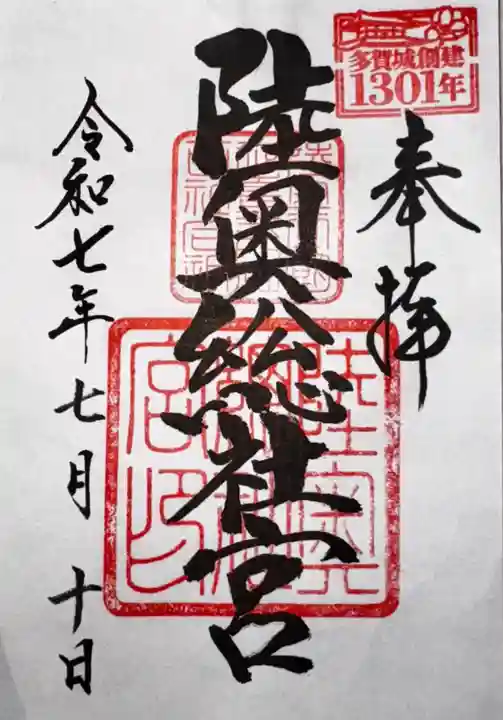 多賀城創建
1301年
奉拝
陸奥総社宮
陸奥總社宮印
令和七年七月十日